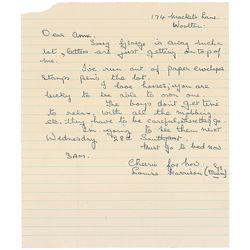 174 Mackets Lane.
Woolton
Dear Anne,
Sorry George is away such a
lot, letters are just getting on top of
me.
I've run out of paper envelopes
stamps pens the lot.
I love horses, you are
lucky to be able to own one.
The boys don't get time
to relax, with all the mobbing
etc, they have to be careful
I'm going to see them next
Wednesday 28th Southport.
Must go to bed now
3AM.
Cheerio for now,
Louise Harrison (Mum)